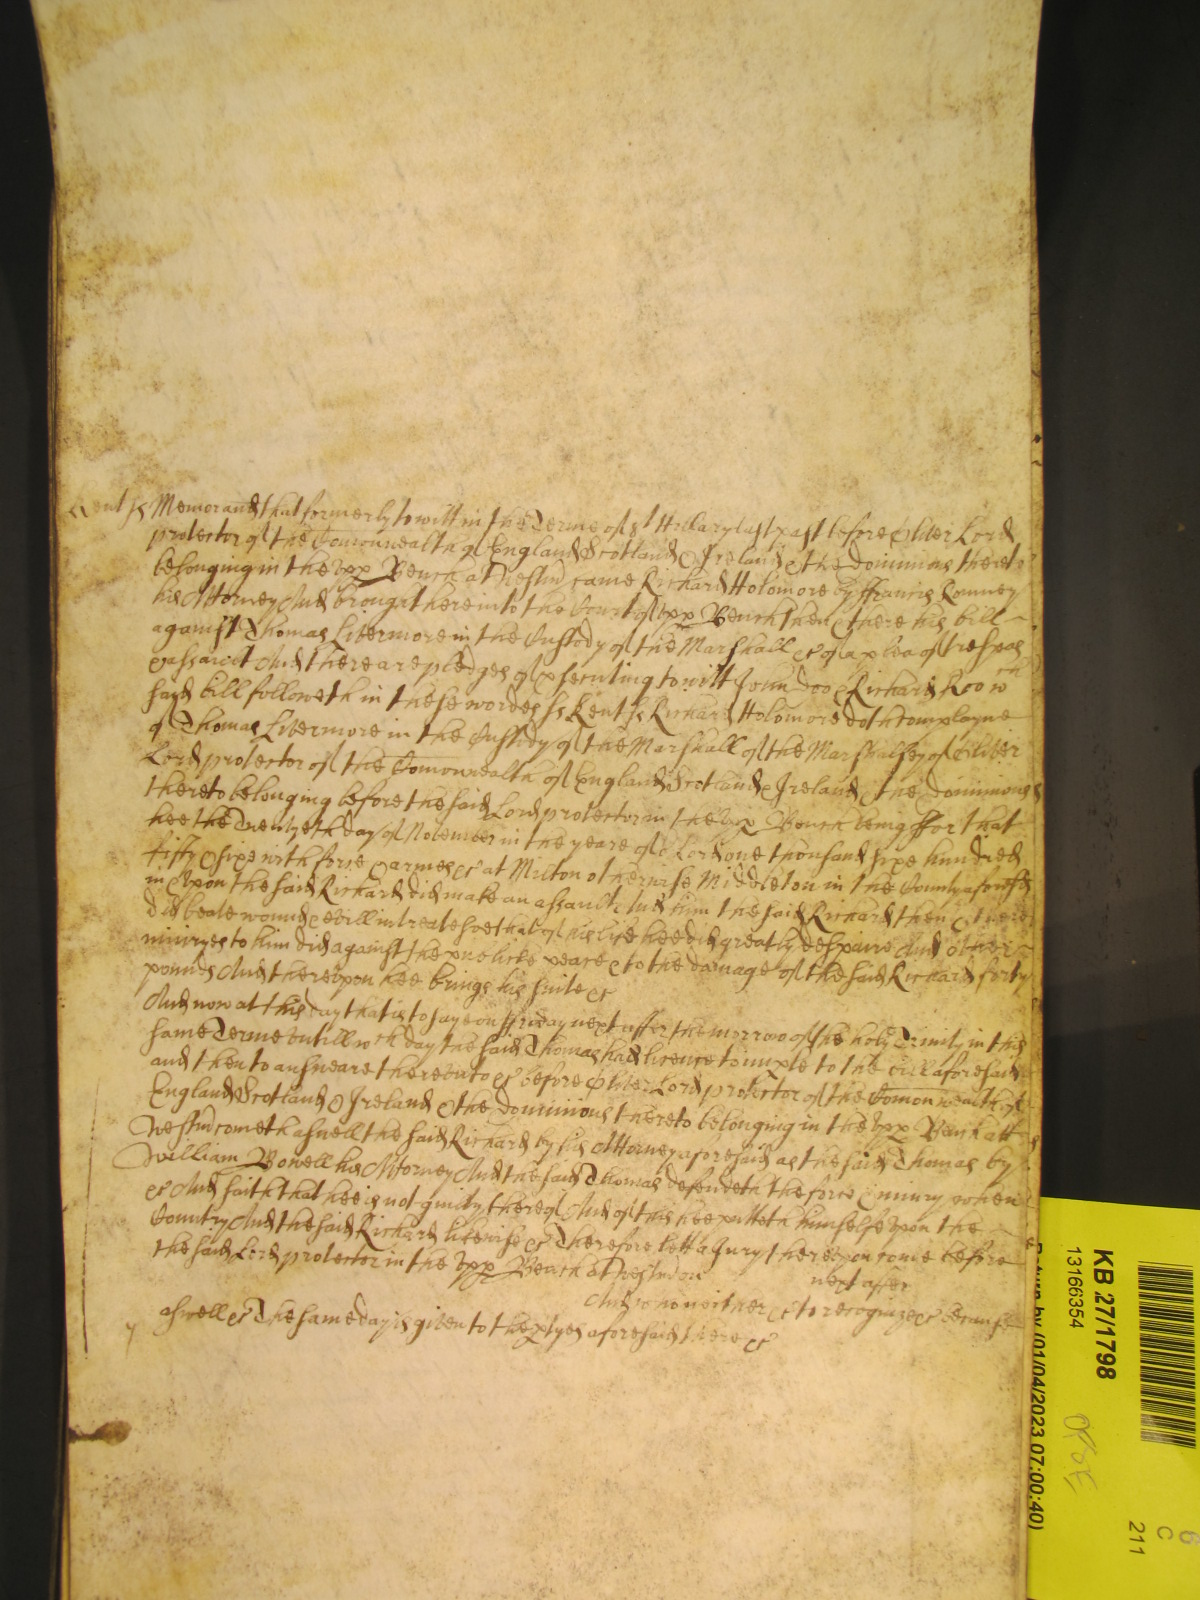 Kent ss Memorand that formerly to witt in the Terme of st Hillary last past before Oliver Lord
protector of the Comonwealth of England Scotland & Ireland & the dominions thereto
belonging in the vpp Bench at Westm came Richard Holomore by ffrancis Romney
his Attorney And brought here into the Court of vpp Bench then & there his bill
against Thomas Livermore in the Custody of the Marshall &c of a plea of trespas
& assault And there are pledges of psecuting to witt John Doo & Richard Roo wch
said bill followeth in these wordes ss Kent ss Richard Holomore doth complayne
of Thomas Livermore in the Custody of the Marshall of the Marshalsey of Oliver
Lord protector of the Comonwealth of England Scotland & Ireland & the dominions
thereto belonging before the said Lord protector in the vpp Bench being ffor that
hee the Twentyeth day of November in the yeare of or Lord one thousand sixe hundred
fifty & sixe with force & armes &c at Milton otherwise Middleton in the County aforesd
in & vpon the said Richard did make an assault And him the said Richard then & there
did beate wound & evill intreate soe that of his life hee did greatly despaire And other
iniuryes to him did against the publicke peace & to the damage of the said Richard forty
pounds And therevpon hee brings his suite &c
And now at this day that is to say on ffriday next after the morrow of the holy Trinity in this
same Terme vntill wch day the said Thomas had licence to imple to the bill aforesaid
and then to answeare therevnto &c before Oliver Lord protector of the Comonwealth of
England Scotland & Ireland & the dominions thereto belonging in the vpp Bench att
Westm cometh aswell the said Richard by his Attorney aforesaid as the said Thomas by
William Bowell his Attorney And the said Thomas defendeth the force & iniury when
&c And saith that hee is not guilty thereof And of this hee putteth himselfe vpon the
Country And the said Richard likewise &c Therefore lett a Jury therevpon come before
the said Lord protector in the vpp Bench at Westm on next after
And who neither &c to recognize &c because
aswell &c The same day is given to the ptyes aforesaid there &c
KB 27/1798
13166354
Return by (01/04/2023 07:00:40)
6
C
211